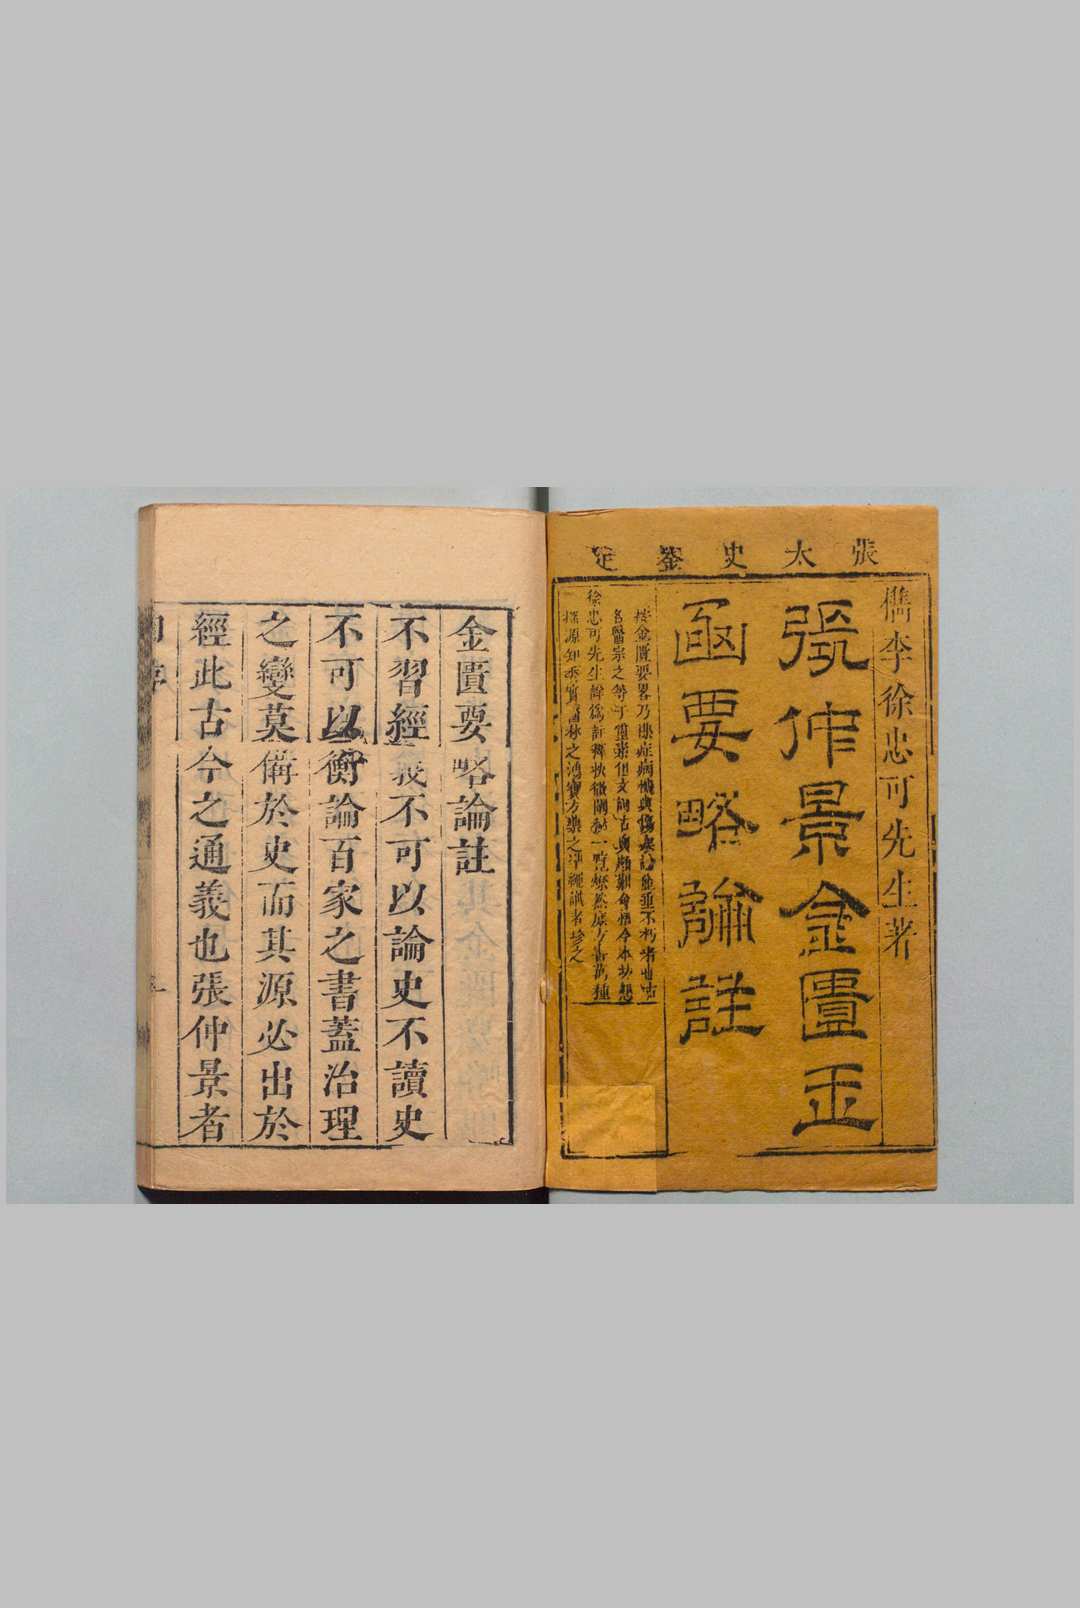 張太史鑒定
檇李徐忠可先生著
張仲景金匱玉
函要略論註
按金匱要畧乃雜症病機與傷寒論並垂不朽者也古
名醫宗之等于靈素但文詞古奧頗難會悟今本坊懇
徐忠可先生詳爲註釋抉微闡幽一覽燎然庶方書萬種
探源知委實醫林之鴻寶方藥之津繩識者珍之
金匱要略論註
不習經義不可以論史不讀史
不可以衡論百家之書蓋治理
之變莫備於史而其源必出於
經此古今之通義也張仲景者